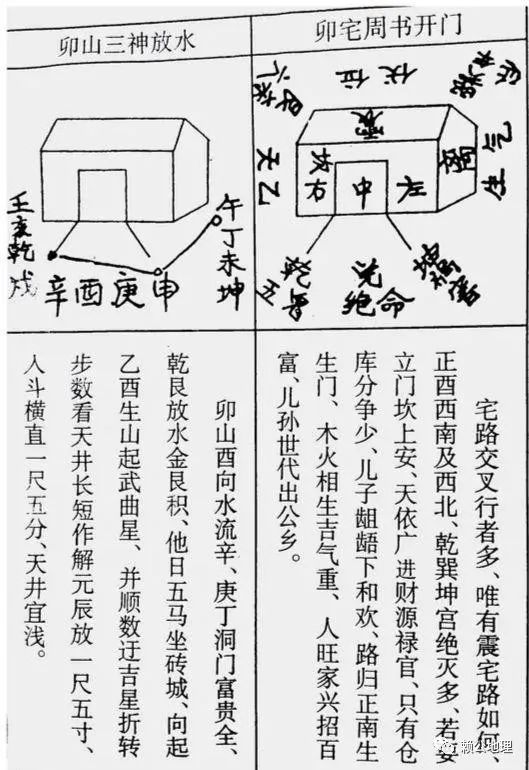 卯宅周书开门
伏位
震
天乙
中
兑
绝命
宅路交叉行者多、唯有震宅路如何、
正酉西南及西北、乾巽坤宫绝灭多、若要
立门坎上安、天依广进财源禄官、只有仓
库分争少、儿子龃龉下和欢、路归正南生
生门、木火相生吉气重、人旺家兴招百
富、儿孙世代出公乡。
卯山三神放水
壬亥乾戌
辛酉庚申
午丁未坤
卯山酉向水流辛、庚丁洞门富贵全、
乾艮放水金艮积、他日五马坐砖城、向起
乙酉生山起武曲星、并顺数迂吉星折转
步数看天井长短作解元辰放一尺五寸、
人斗横直一尺五分、天井宜浅。
赖公地理